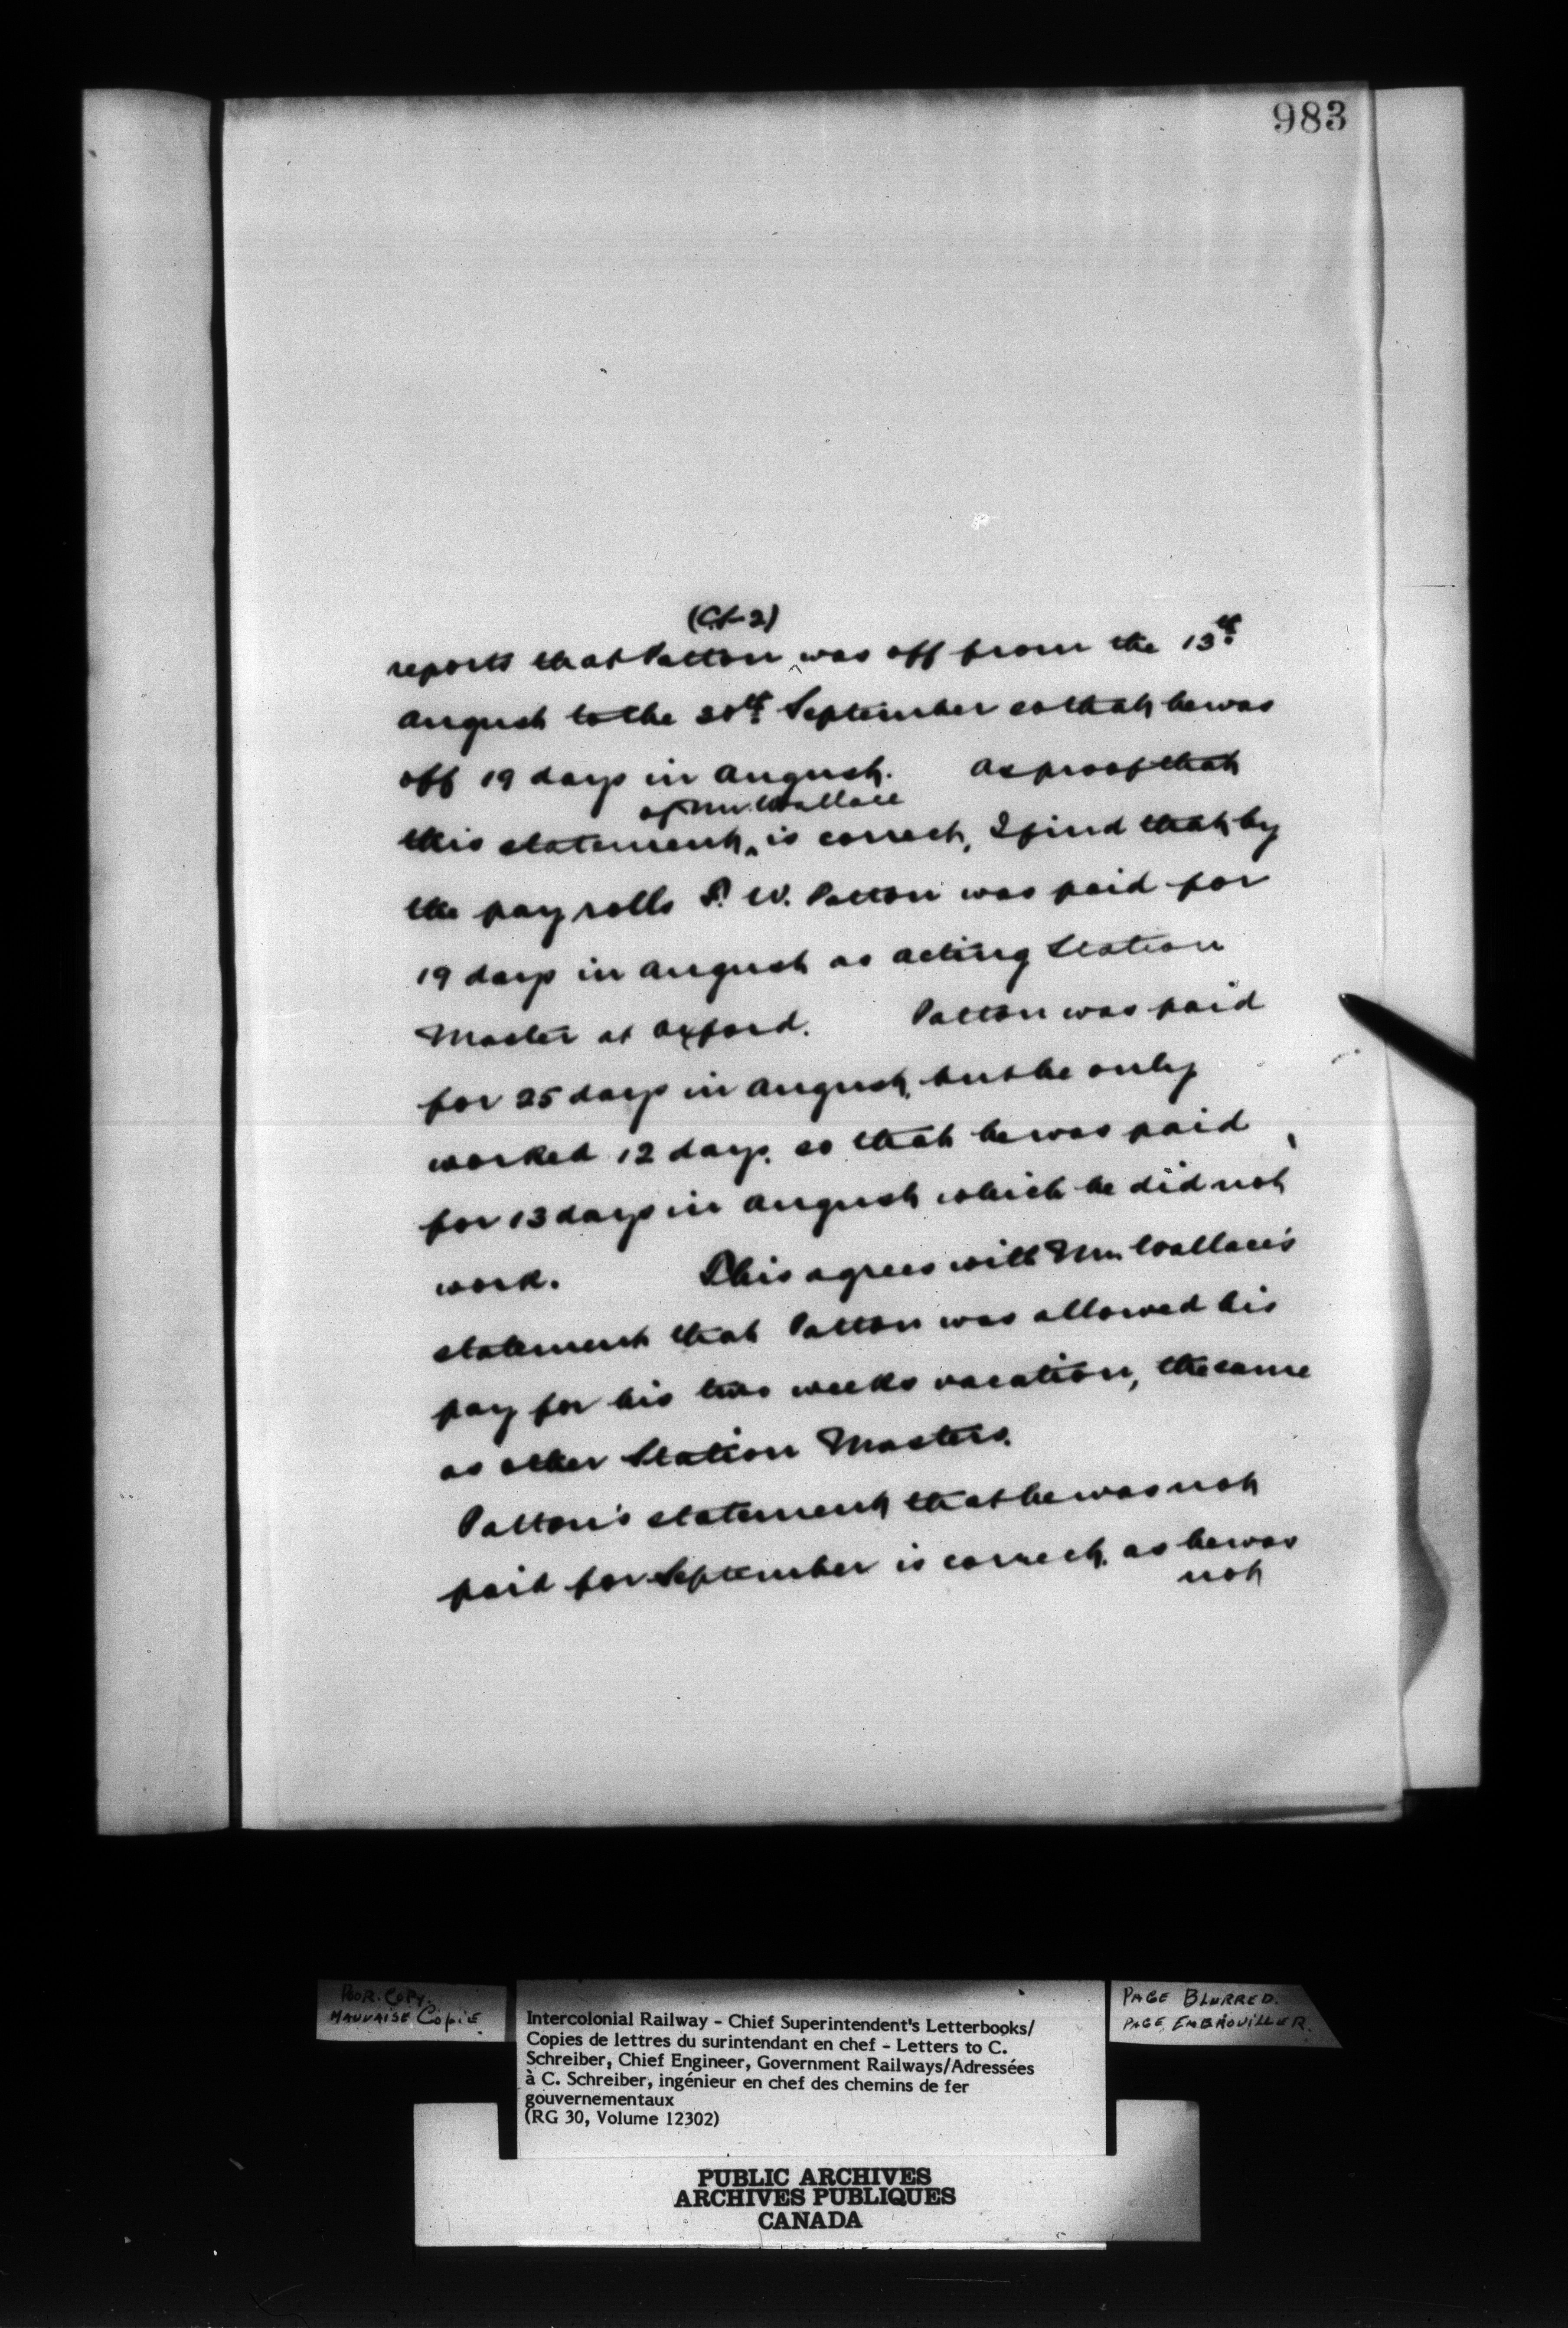 983
(Cf-2)
reports that Patton was off from the 13th
August to the 30th September so that he was
off 19 days in August. As proof that
of Mr. Wallace
this statement ^ is correct, I find that by
the pay rolls S. W. Patton was paid for
19 days in August as acting Station
Master at Oxford. Patton was paid
for 25 days in August, but he only
worked 12 days, so that he was paid
for 13 days in August which he did not
work. This agrees with Mr. Wallace's
statement that Patton was allowed his
pay for his two weeks vacation, the same
as other Station Masters.
Patton's statement that he was not
paid for September is correct, as he was
not
POOR. COPY.
MAUVAISE COPIE
PAGE BLURRED.
PAGE EMBROUILLER.
Intercolonial Railway - Chief Superintendent's Letterbooks/
Copies de lettres du surintendant en chef - Letters to C.
Schreiber, Chief Engineer, Government Railways/Adressées
à C. Schreiber, ingénieur en chef des chemins de fer
gouvernementaux
(RG 30, Volume 12302)
PUBLIC ARCHIVES
ARCHIVES PUBLIQUES
CANADA